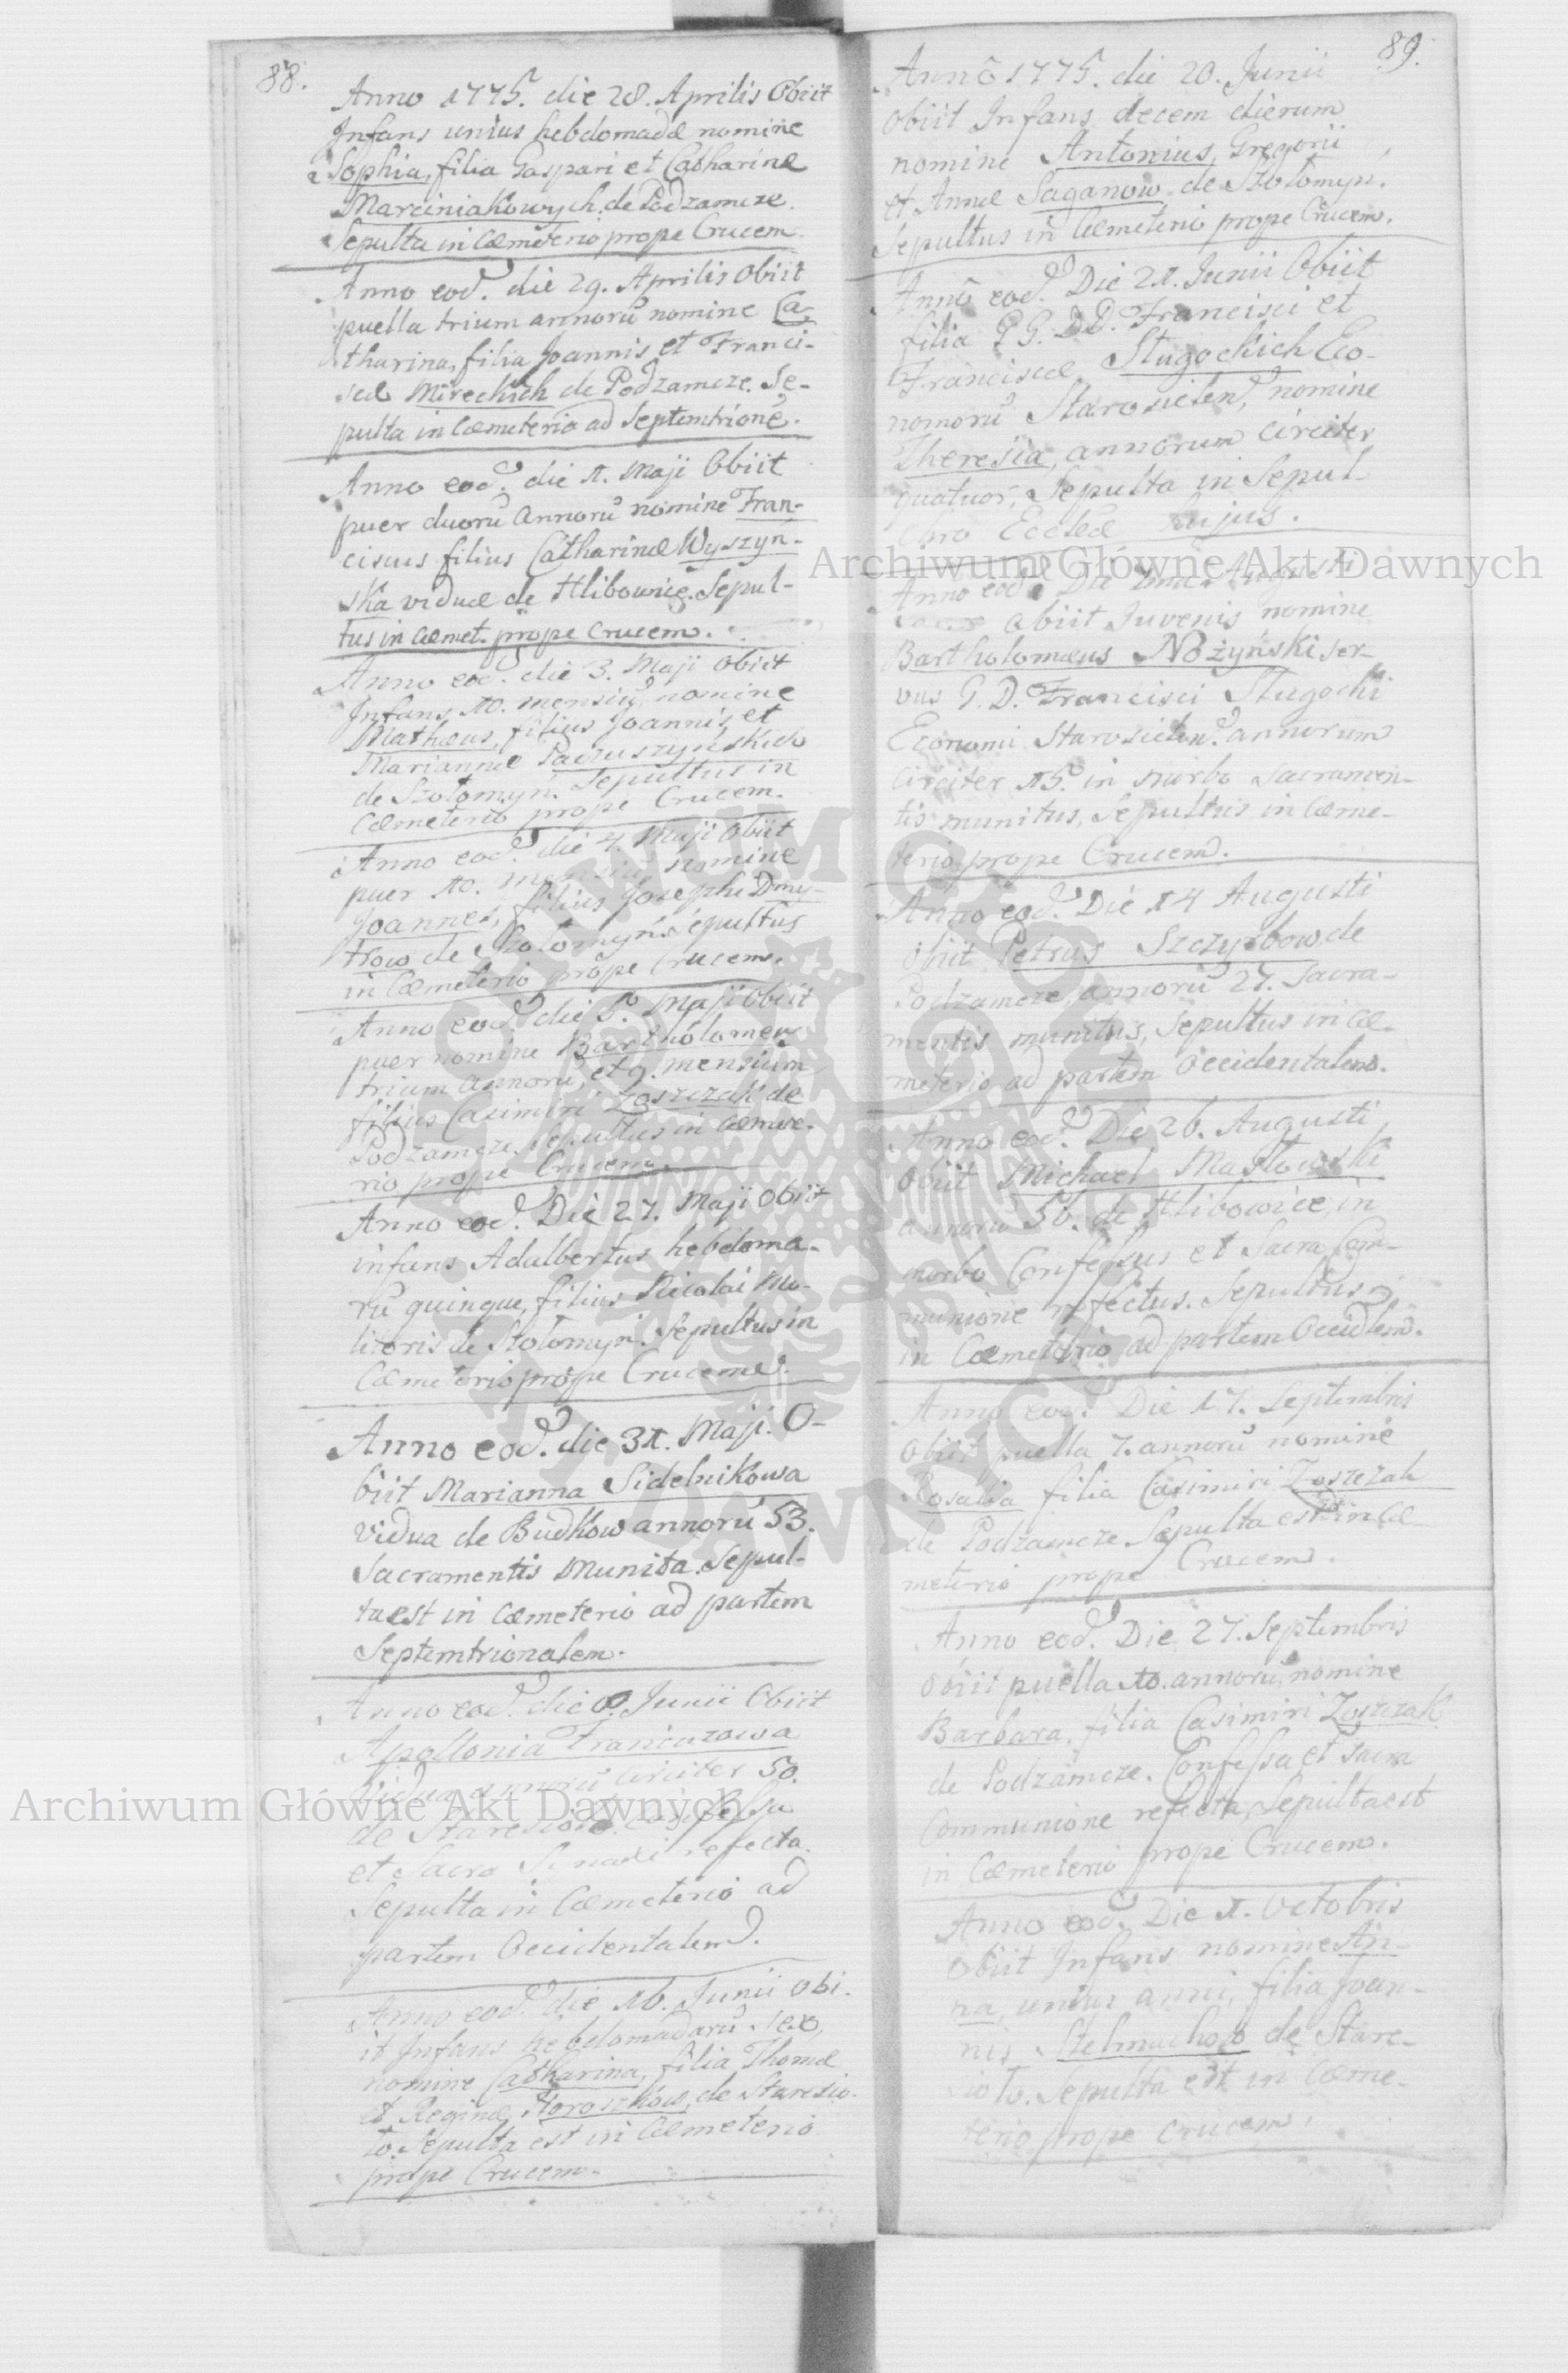 88.
Anno 1775. die 28. Aprilis Obiit
Infans unius hebdomadæ nomine
Sophia, filia Gaspari et Catharinæ
Marciniakowych de Podzamcze.
Sepulta in Cæmeterio prope Crucem.
Anno eod. die 29. Aprilis Obiit
puella trium annorũ nomine Ca-
tharina, filia Joannis et Franci-
scæ Mireckich de Podzamcze. Se-
pulta in Cæmeterio ad Septemtrionẽ.
Anno eod. die 1. Maji Obiit
puer duorũ Annorũ nomine Fran-
ciscus filius Catharinæ Wyszyn-
ska viduæ de Hlibowice. Sepul-
tus in Cæmet. prope Crucem.
Anno eod. die 3. Maji Obiit
Infans 10. mensiũ, nomine
Mathæus, filius Joannis et
Mariannæ
de Szołomyn. Sepultus in
Cæmeterio prope Crucem.
Anno eod. die 4. Maji Obiit
puer 10. mensiũ nomine
Joannes, filius Josephi Dmy-
trow de Szołomyn sepultus
in Cæmeterio prope Crucem.
Anno eod. die 5. Maji Obiit
puer nomine Bartholomeus
trium Annorũ, et 9. mensium
filius Casimiri Zoszczak de
Podzamcze. Sepultus in Cæmete-
rio prope Crucem.
Anno eod. Die 27. Maji Obiit
infans Adalbertus hebdoma-
rũ quinque, filius Nicolai Mo-
litoris de Szołomyn. Sepultus in
Cæmeterio prope Crucem.
Anno eod. die 31. Maji. O-
biit Marianna Sidelnikowa
vidua de Budkow annorũ 53.
Sacramentis Munita. Sepul-
ta est in Cæmeterio ad partem
Septemtrionalem.
Anno eod. die Junii Obiit
Apollonia Francuzowa
Vidua annorũ circiter 50.
de Staresioło. confessa
et Sacra Synaxi refecta.
Sepulta in Cæmeterio ad
partem Occidentalem.
Anno eod. die 16. Junii Obi-
it Infans hebdomadarũ sex,
nomine Catharina, filia Thomæ
et Reginæ Horoszkow, de Staresio-
ło. Sepulta est in Cæmeterio
prope Crucem.
89.
Anno 1775. die 20. Junii
Obiit Infans decem dierum
nomine Antonius, Gregorii
et Annæ Saganow de Szołomyn.
Sepultus in Cæmeterio prope Crucem.
Anno eod. Die 21. Junii Obiit
filia P G. D D. Francisci et
Franciscæ Sługockich Eco-
nomorũ Starosielen, nomine
Theresia, annorum circiter
quatuor, Sepulta in Sepul-
cro Eccleæ hujus.
Anno eod. Die 2ma Augusti
obiit Juvenis nomine
Bartholomæus Nożyński ser-
vus G. D. Francisci Sługocki
Economi Starosielen. annorum
circiter 15. in morbo Sacramen-
tis munitus, Sepultus in Cæme-
terio prope Crucem.
Anno eod. Die 14 Augusti
obiit Petrus Szczyrbow de
Podzamcze, annorũ 27. Sacra-
mentis munitus, Sepultus in Cæ-
meterio ad partem Occidentalem.
Anno eod. Die 26. Augusti,
Obiit Michael Masłowski
annorũ 56. de Hlibowice, in
morbo Confessus et Sacra Com-
munione refectus. Sepultus
in Cæmeterio ad partem Occidlem.
Anno eod. Die 17. Septembris
Obiit puella 7. annorũ nomine
Rosalia filia Casimiri Zoszczak
de Podzamcze Sepulta est in Cæ-
meterio prope Crucem.
Anno eod. Die 27. Septembris
Obiit puella 10. annorũ, nomine
Barbara, filia Casimiri Zoszczak
de Podzamcze. Confessa et Sacra
Communione refecta, Sepulta est
in Cæmeterio prope Crucem.
Anno eod. Die 1. Octobris
Obiit Infans nomine An-
na, unius anni, filia Joan-
nis Stelmachow de Stare-
sioło. Sepulta est in Cæme-
terio prope Crucem.
Archiwum Główne Akt Dawnych
Archiwum Główne Akt Dawnych
ARCHIWUM GŁÓWNE AKT DAWNYCH